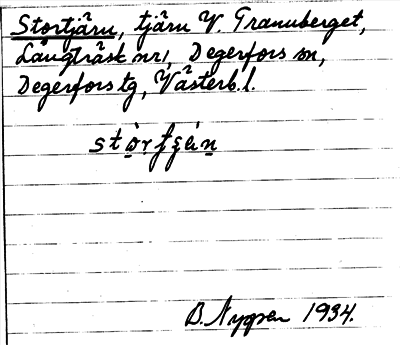 Stortjärn, tjärn V. Granuberget,
Långträsk nr 1, Degerfors sn,
Degerfors tg, Västerb. l.
B. Nygren 1934.